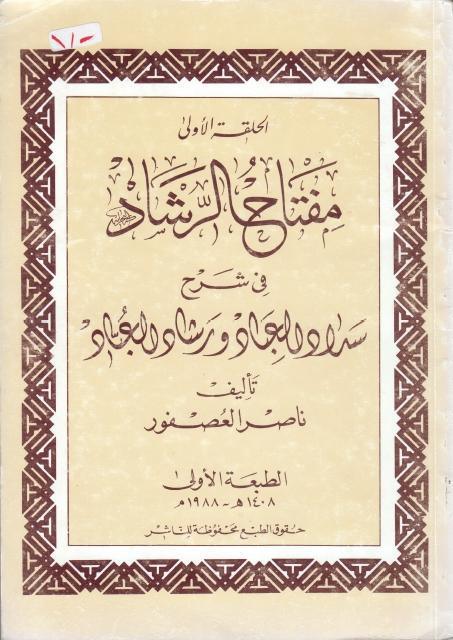 ١/-
الحلقة الأولى
مفتاح الرشاد
في شرح
سداد العباد ورشاد العباد
تأليف
ناصر العصفور
الطبعة الأولى
١٤٠٨ هـ - ١٩٨٨ م
حقوق الطبع محفوظة للناشر